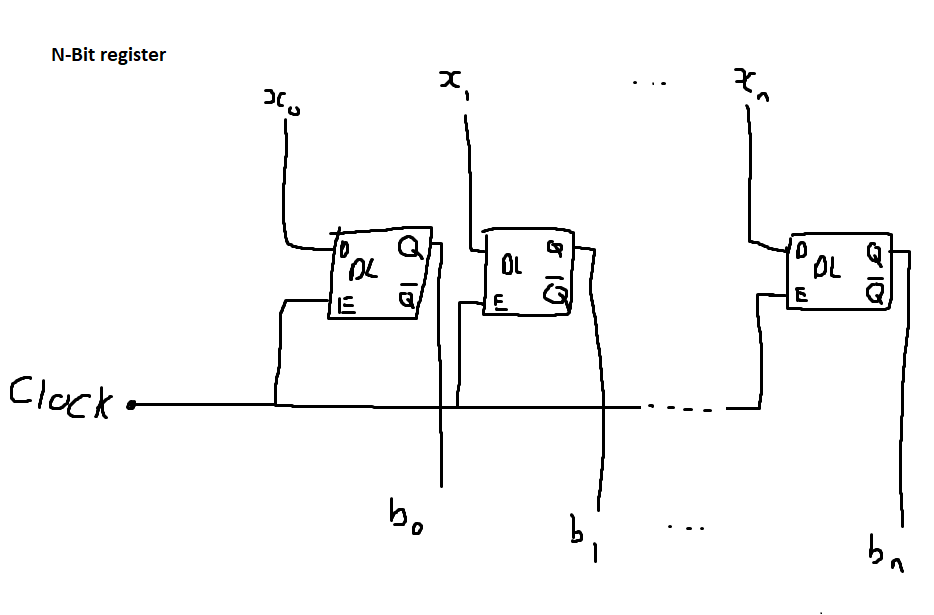 N-Bit register
x₀ x₁ ... xₙ
D Q DL E Q̅
Q DL E Q̅
D Q DL E Q̅
Clock
b₀ b₁ ... bₙ